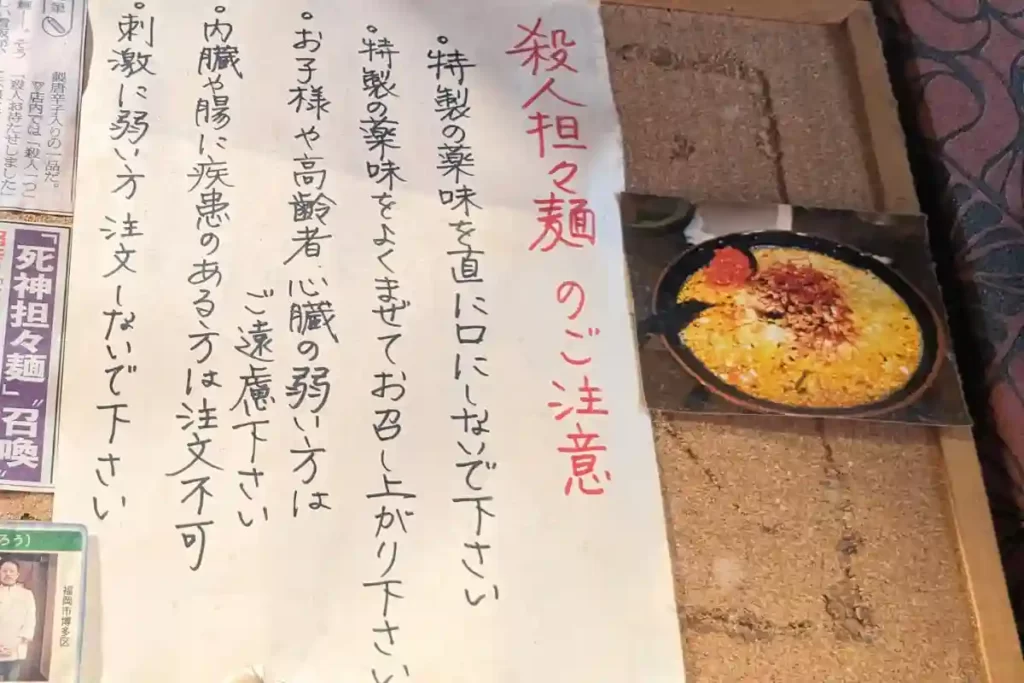 殺人担々麺のご注意
・特製の薬味を直に口にしないで下さい
・特製の薬味をよくまぜてお召し上がり下さい
・お子様や高齢者、心臓の弱い方は
ご遠慮下さい
・内臓や腸に疾患のある方は注文不可
・刺激に弱い方 注文しないで下さい
唐辛子入りの一品だ。
店内では「殺人一つ」
「殺人お待たせしました」
「死神担々麺」〝召喚〟
ろう)
福岡市博多区